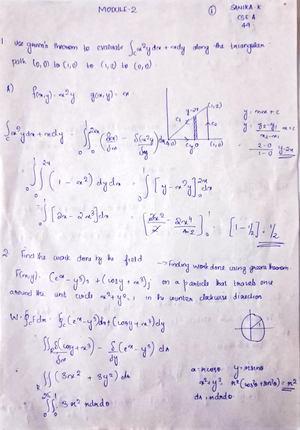 MODULE-2
①
SANIKA.K
CSE A
44
1 Use green's theorem to evaluate ∫c x²y dx + x dy along the triangular
path (0,0) to (1,0) to (1,2) to (0,0).
A) f(x,y) = x²y g(x,y) = x
y=2x
(1,2)
C3
C2
C1
(1,0)
y = mx + c
y = y2-y1 / x2-x1 x + c
2-0 / 1-0 y=2x
∫c x²y dx + x dy = ∫₀¹∫₀²ˣ (∂(x)/∂x - ∂(x²y)/∂y) dy dx
∫₀¹∫₀²ˣ (1 - x²) dy dx = ∫₀¹ [y - x²y]₀²ˣ dx
∫₀¹ [2x - 2x³] dx = [2x²/2 - 2x⁴/4]₀¹ = [1-1/2] = 1/2
2 Find the work done by the field → Finding work done using green's theorem.
F(x,y) = (eˣ - y³)i + (cos y + x³)j on a particle that travels once
around the unit circle x²+y²=1 in the counter clockwise direction
W = ∮c F.dr = ∮c (eˣ - y³) dx + (cos y + x³) dy
∬R ∂/∂x (cos y + x³) - ∂/∂y (eˣ - y³) dA
∬R (3x² + 3y²) dA
x = r cosθ y = r sinθ
x²+y² = r²(cos²θ + sin²θ) = r²
dA = r dr dθ
∫₀²π∫₀¹ 3r² r dr dθ